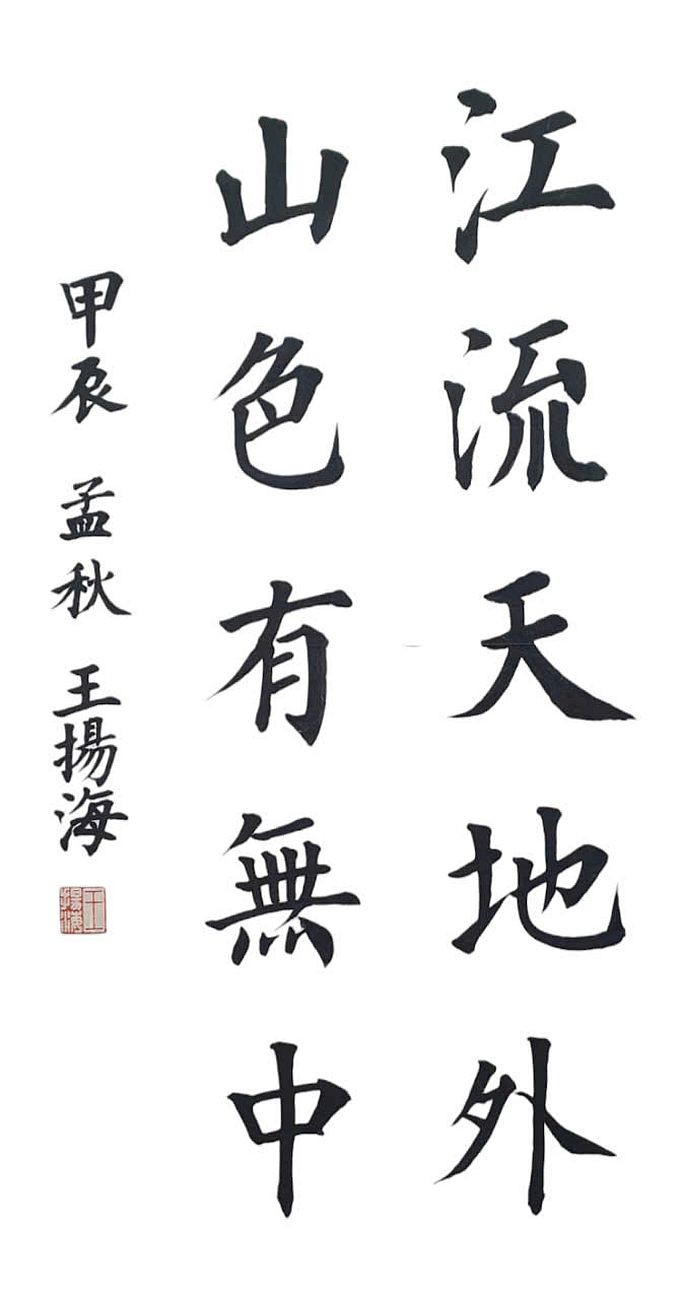 江流天地外
山色有無中
甲辰 孟秋 王揚海
王揚海